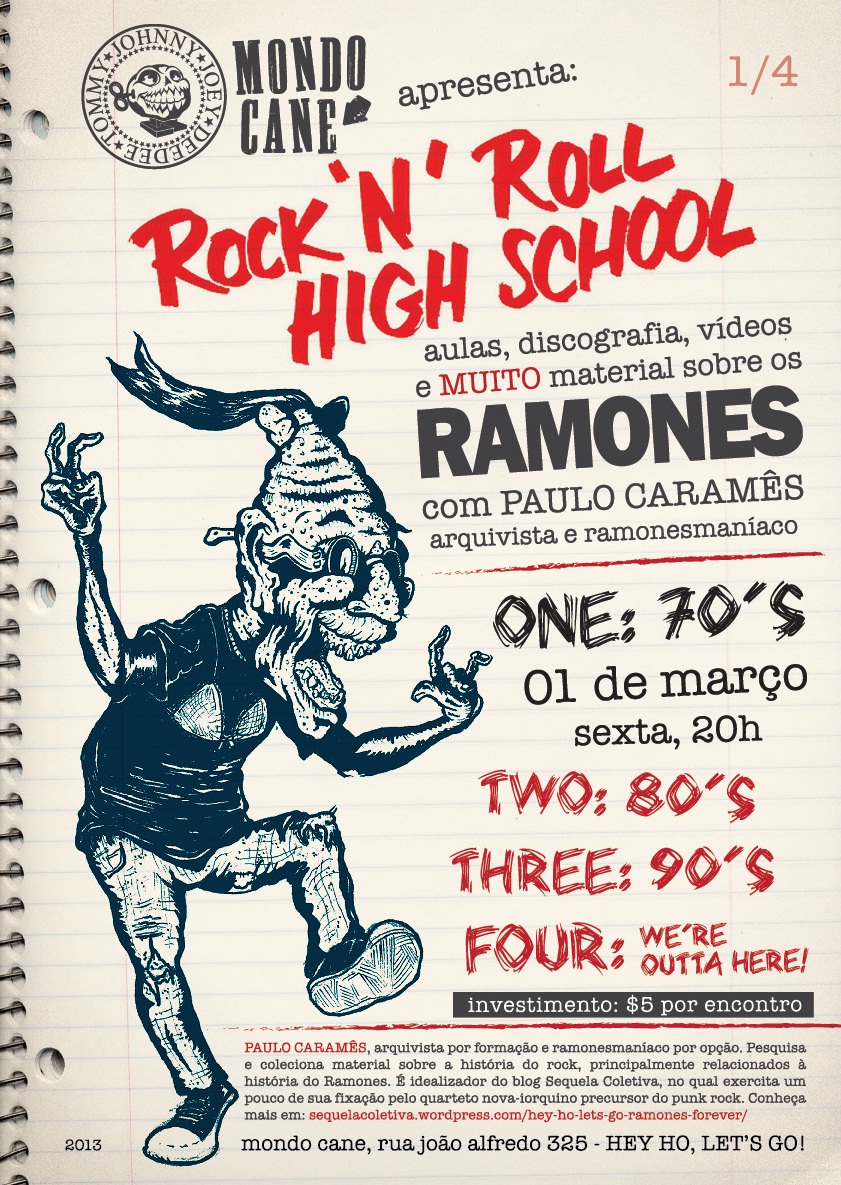 JOHNNY ★ JOEY ★ DEEDEE ★ TOMMY ★
MONDO
CANE
apresenta:
1/4
ROCK 'N' ROLL
HIGH SCHOOL
aulas, discografia, vídeos
e MUITO material sobre os
RAMONES
com PAULO CARAMÊS
arquivista e ramonesmaníaco
ONE: 70´S
01 de março
sexta, 20h
TWO: 80´S
THREE: 90´S
FOUR: WE´RE
OUTTA HERE!
investimento: $5 por encontro
PAULO CARAMÊS, arquivista por formação e ramonesmaníaco por opção. Pesquisa
e coleciona material sobre a história do rock, principalmente relacionados à
história do Ramones. É idealizador do blog Sequela Coletiva, no qual exercita um
pouco de sua fixação pelo quarteto nova-iorquino precursor do punk rock. Conheça
mais em: sequelacoletiva.wordpress.com/hey-ho-lets-go-ramones-forever/
2013
mondo cane, rua joão alfredo 325 - HEY HO, LET'S GO!